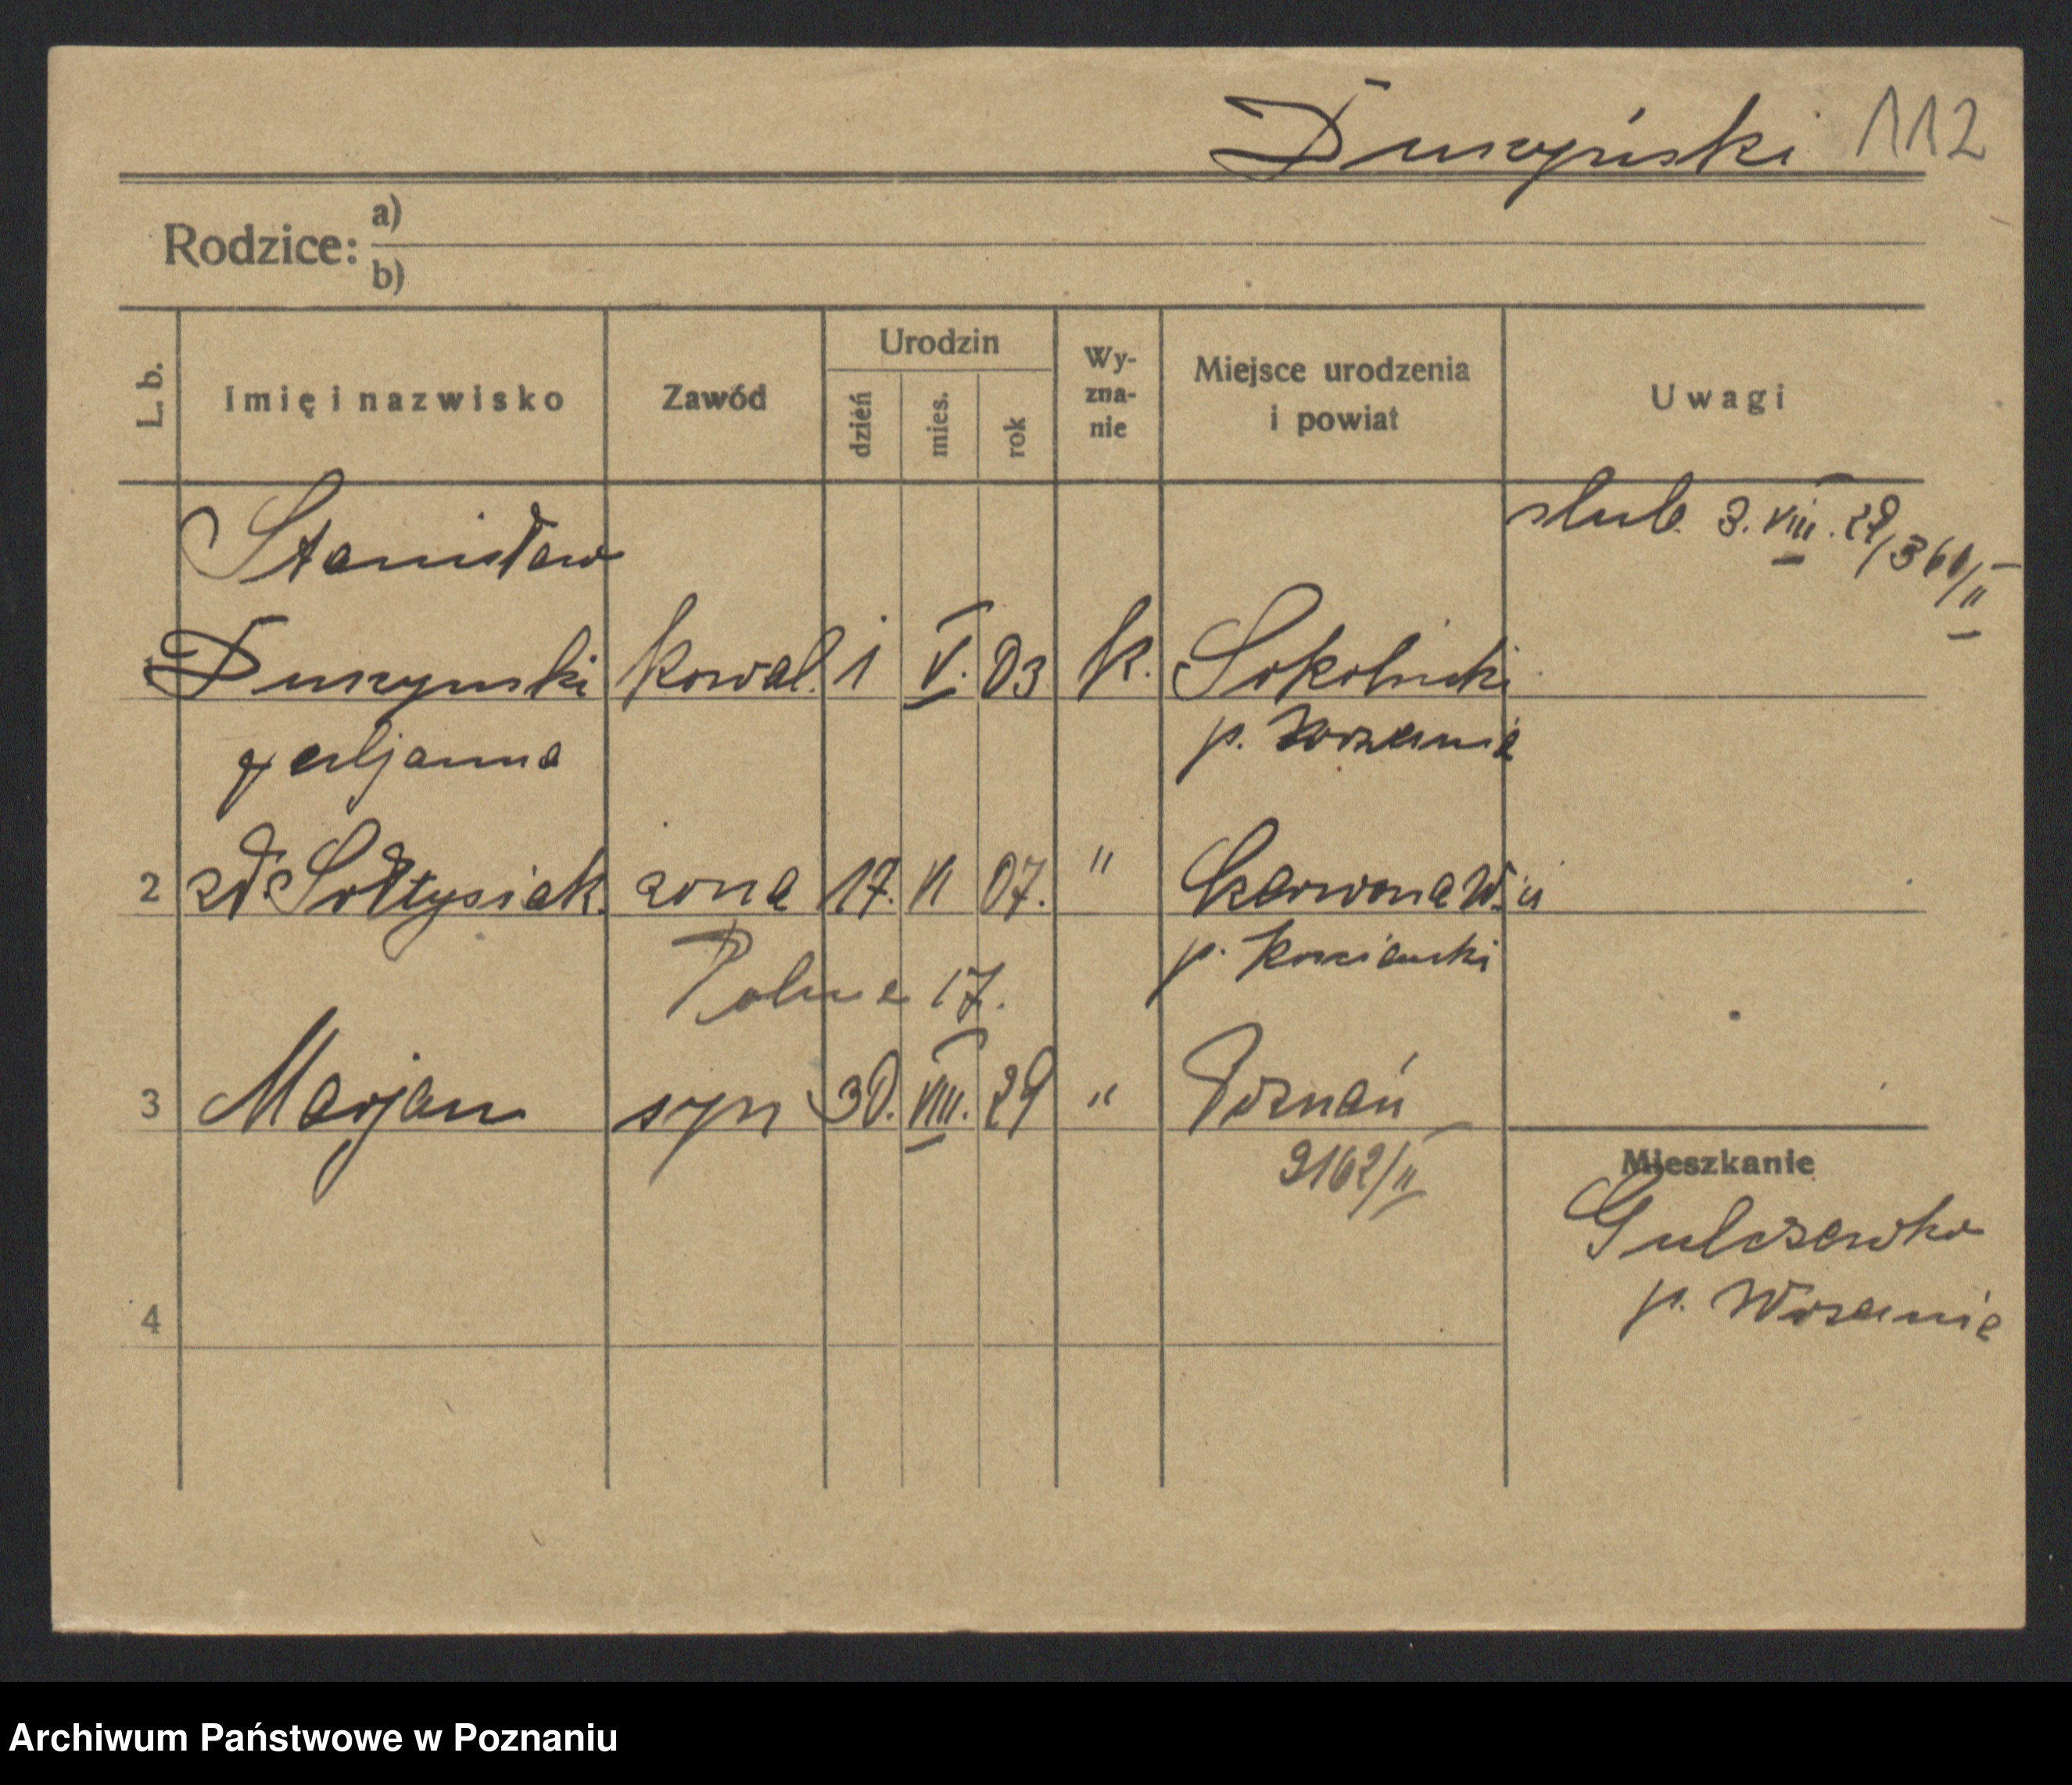 Duszyński 112
Rodzice: a)
b)
L. b.
Imię i nazwisko
Zawód
Urodzin
dzień
mies.
rok
Wy-
zna-
nie
Miejsce urodzenia
i powiat
Uwagi
Stanisław
ślub. 3.VIII.29/360/II
1 Duszynski kowal. 1 V. 03 k. Sokolnicki
p. Września
Juljanna
2 zd. Sołtysiak żona 17. VI 07. " Czerwona Wś
p. Kościański
Polna 17.
3 Marjan syn 30. VIII. 29 " Poznań
9162/II
Mieszkanie
Gulczewko
p. Września
4
Archiwum Państwowe w Poznaniu